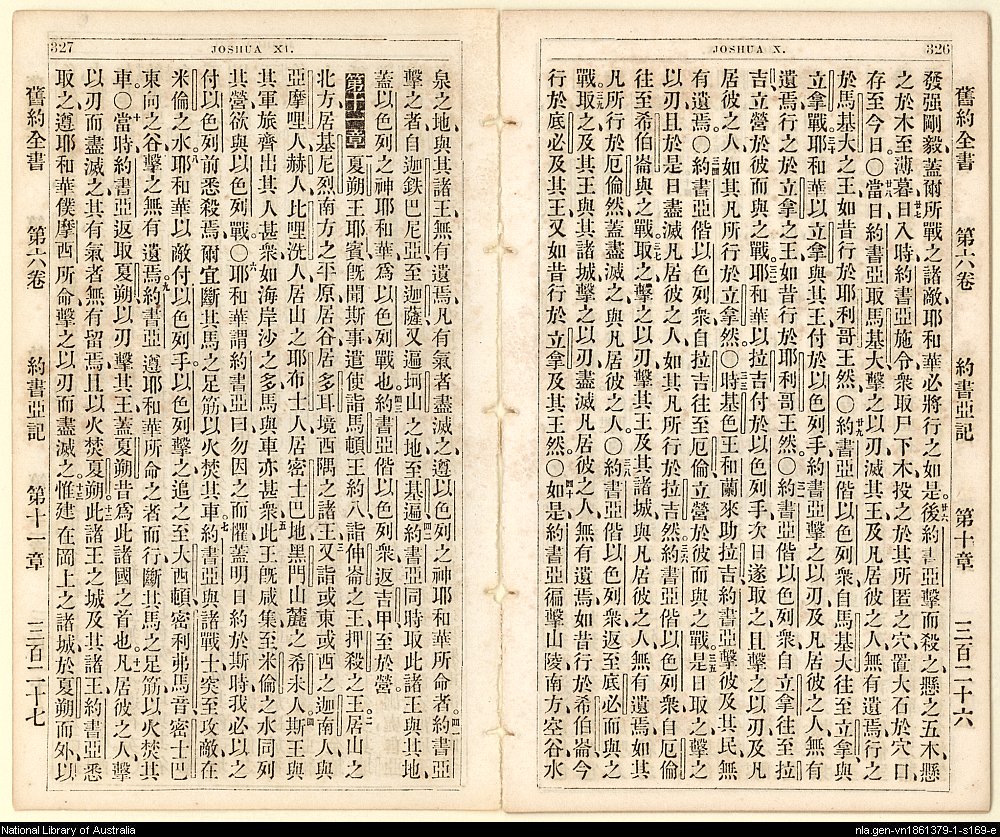 JOSHUA X. 326
舊約全書 第六卷 約書亞記 第十章 三百二十六
發強剛毅、蓋爾所戰之諸敵、耶和華必將行之如是。後約書亞擊而殺之、懸之五木、懸
之於木至薄暮、日入時約書亞施令、衆取尸下木、投之於其所匿之穴、置大石於穴口、
存至今日、○當日約書亞取馬基大、擊之以刃、滅其王、及凡居彼之人、無有遺焉、行之
於馬基大之王、如昔行於耶利哥王然、○約書亞偕以色列衆、自馬基大往至立拿、與
立拿戰、耶和華以立拿與其王、付於以色列手、約書亞擊之以刃、及凡居彼之人、無有
遺焉、行之於立拿之王、如昔行於耶利哥王然、○約書亞偕以色列衆、自立拿往至拉
吉、立營於彼、而與之戰、耶和華以拉吉付於以色列手、次日遂取之、且擊之以刃、及凡
居彼之人、如其凡所行於立拿然、○時基色王和蘭來助拉吉、約書亞擊彼及其民、無
有遺焉、○約書亞偕以色列衆、自拉吉往至厄倫、立營於彼、而與之戰、是日取之、擊之
以刃、且於是日盡滅凡居彼之人、如其凡所行於拉吉然、約書亞偕以色列衆、自厄倫
往至希伯崙、與之戰、取之擊之以刃、擊其王、及其諸城、與凡居彼之人、無有遺焉、如其
凡所行於厄倫然、蓋盡滅之、與凡居彼之人、○約書亞偕以色列衆、返至底必、而與之
戰、取之、及其王、與其諸城、擊之以刃、盡滅凡居彼之人、無有遺焉、如昔行於希伯崙、今
行於底必、及其王、又如昔行於立拿、及其王然、○如是約書亞徧擊山陵、南方、空谷、水
327 JOSHUA XI.
泉之地、與其諸王、無有遺焉、凡有氣者盡滅之、遵以色列之神耶和華所命者。約書亞
擊之者、自迦鉄巴尼亞至迦薩、又遍坷山之地、至基遍、約書亞同時取此諸王、與其地、
蓋以色列之神耶和華、爲以色列戰也、約書亞偕以色列衆、返吉甲至於營。
第十一章 夏朔王耶賓旣聞斯事、遣使詣馬頓王約八、詣伸崙之王、押殺之王、居山之
北方、居基尼烈南方之平原、居谷、居多耳境西隅之諸王、又詣或東或西之迦南人、與
亞摩哩人、赫人、比哩洗人、居山之耶布士人、居密士巴地黑門山麓之希未人、斯王與
其軍旅齊出、其人甚衆、如海岸沙之多、馬與車亦甚衆、此王旣咸集、至米倫之水、同列
其營、欲與以色列戰、○耶和華謂約書亞曰、勿因之而懼、蓋明日約於斯時、我必以之
付以色列前、悉殺焉、爾宜斷其馬之足筋、以火焚其車、約書亞與諸戰士突至攻敵、在
米倫之水、耶和華以敵付以色列手、以色列擊之、追之、至大西頓、密利弗馬音、密士巴
東向之谷、擊之無有遺焉、約書亞遵耶和華所命之者而行、斷其馬之足筋、以火焚其
車、○當時約書亞返取夏朔、以刃擊其王、蓋夏朔昔爲此諸國之首也、凡居彼之人、擊
以刃而盡滅之、其有氣者無有留焉、且以火焚夏朔。此諸王之城、及其諸王、約書亞悉
取之、遵耶和華僕摩西所命、擊之以刃、而盡滅之。惟建在岡上之諸城、於夏朔而外、以
舊約全書 第六卷 約書亞記 第十一章 三百二十七
National Library of Australia
nla.gen-vn1861379-1-s169-e